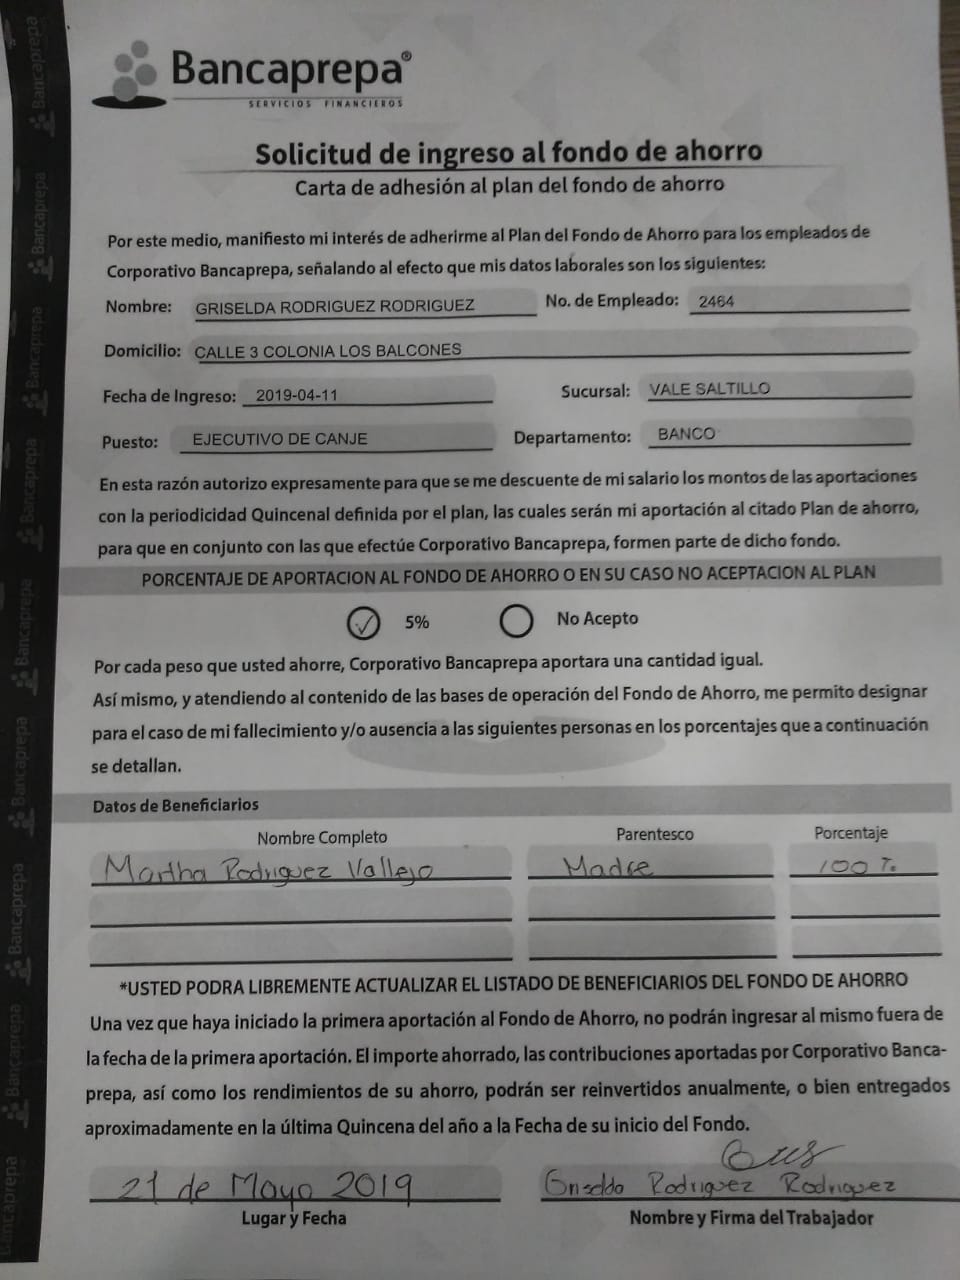 Bancaprepa®
SERVICIOS FINANCIEROS
Solicitud de ingreso al fondo de ahorro
Carta de adhesión al plan del fondo de ahorro
Por este medio, manifiesto mi interés de adherirme al Plan del Fondo de Ahorro para los empleados de
Corporativo Bancaprepa, señalando al efecto que mis datos laborales son los siguientes:
Nombre: GRISELDA RODRIGUEZ RODRIGUEZ No. de Empleado: 2464
Domicilio: CALLE 3 COLONIA LOS BALCONES
Fecha de Ingreso: 2019-04-11 Sucursal: VALE SALTILLO
Puesto: EJECUTIVO DE CANJE Departamento: BANCO
En esta razón autorizo expresamente para que se me descuente de mi salario los montos de las aportaciones
con la periodicidad Quincenal definida por el plan, las cuales serán mi aportación al citado Plan de ahorro,
para que en conjunto con las que efectúe Corporativo Bancaprepa, formen parte de dicho fondo.
PORCENTAJE DE APORTACION AL FONDO DE AHORRO O EN SU CASO NO ACEPTACION AL PLAN
5% No Acepto
Por cada peso que usted ahorre, Corporativo Bancaprepa aportara una cantidad igual.
Así mismo, y atendiendo al contenido de las bases de operación del Fondo de Ahorro, me permito designar
para el caso de mi fallecimiento y/o ausencia a las siguientes personas en los porcentajes que a continuación
se detallan.
Datos de Beneficiarios
Nombre Completo Parentesco Porcentaje
Martha Rodriguez Vallejo Madre 100 %
*USTED PODRA LIBREMENTE ACTUALIZAR EL LISTADO DE BENEFICIARIOS DEL FONDO DE AHORRO
Una vez que haya iniciado la primera aportación al Fondo de Ahorro, no podrán ingresar al mismo fuera de
la fecha de la primera aportación. El importe ahorrado, las contribuciones aportadas por Corporativo Banca-
prepa, así como los rendimientos de su ahorro, podrán ser reinvertidos anualmente, o bien entregados
aproximadamente en la última Quincena del año a la Fecha de su inicio del Fondo.
21 de Mayo 2019 Griselda Rodriguez Rodriguez
Lugar y Fecha Nombre y Firma del Trabajador
Bancaprepa
Bancaprepa
Bancaprepa
Bancaprepa
Bancaprepa
Bancaprepa
Bancaprepa
Bancaprepa
Bancaprepa